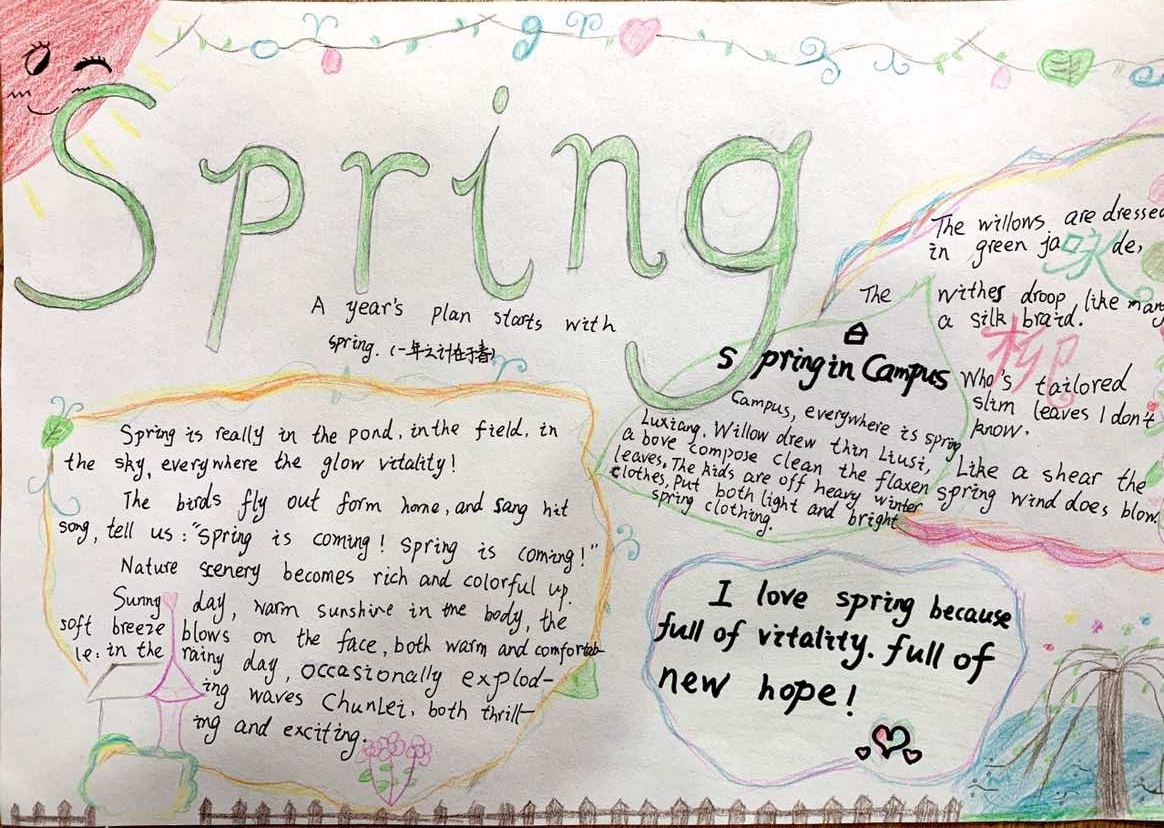 Spring
A year's plan starts with
spring. (一年之计在于春)
Spring is really in the pond, in the field, in
the sky, everywhere the glow vitality!
The birds fly out form home, and sang hit
song, tell us: "Spring is coming! Spring is coming!"
Nature scenery becomes rich and colorful up.
Sunny day, warm sunshine in the body, the
soft breeze blows on the face, both warm and comfortab-
le: in the rainy day, occasionally explod-
ing waves ChunLei, both thrill-
ing and exciting.
Spring in Campus
Campus, everywhere is spring
Luxiang. Willow drew thin Liusi,
a bove compose clean the flaxen
leaves. The kids are off heavy winter
clothes, put both light and bright
spring clothing.
The willows are dressed
in green jade,
咏
The withes droop like many
a silk braid.
柳
Who's tailored
slim leaves I don't
know.
Like a shear the
spring wind does blow.
I love spring because
full of vitality. full of
new hope!